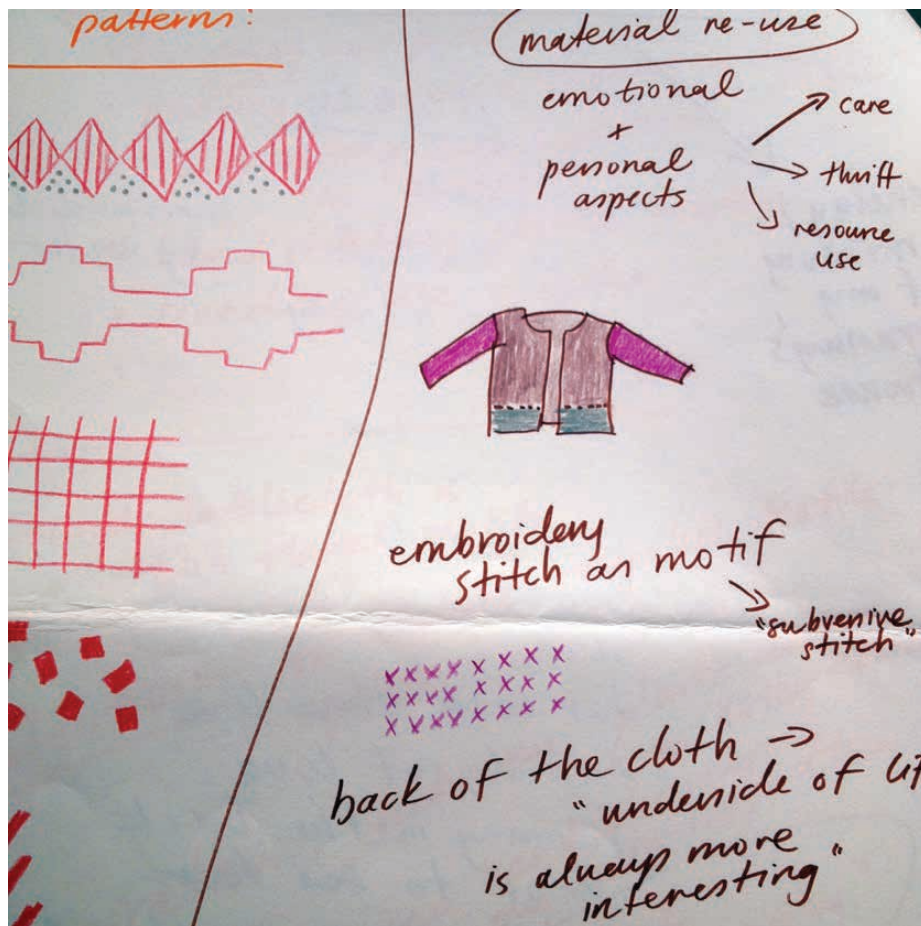 patterns:
material re-use
emotional
+
personal
aspects
care
thrift
resource
use
embroidery
stitch as motif
"subversive
stitch"
back of the cloth →
"underside of
is always more
interesting"